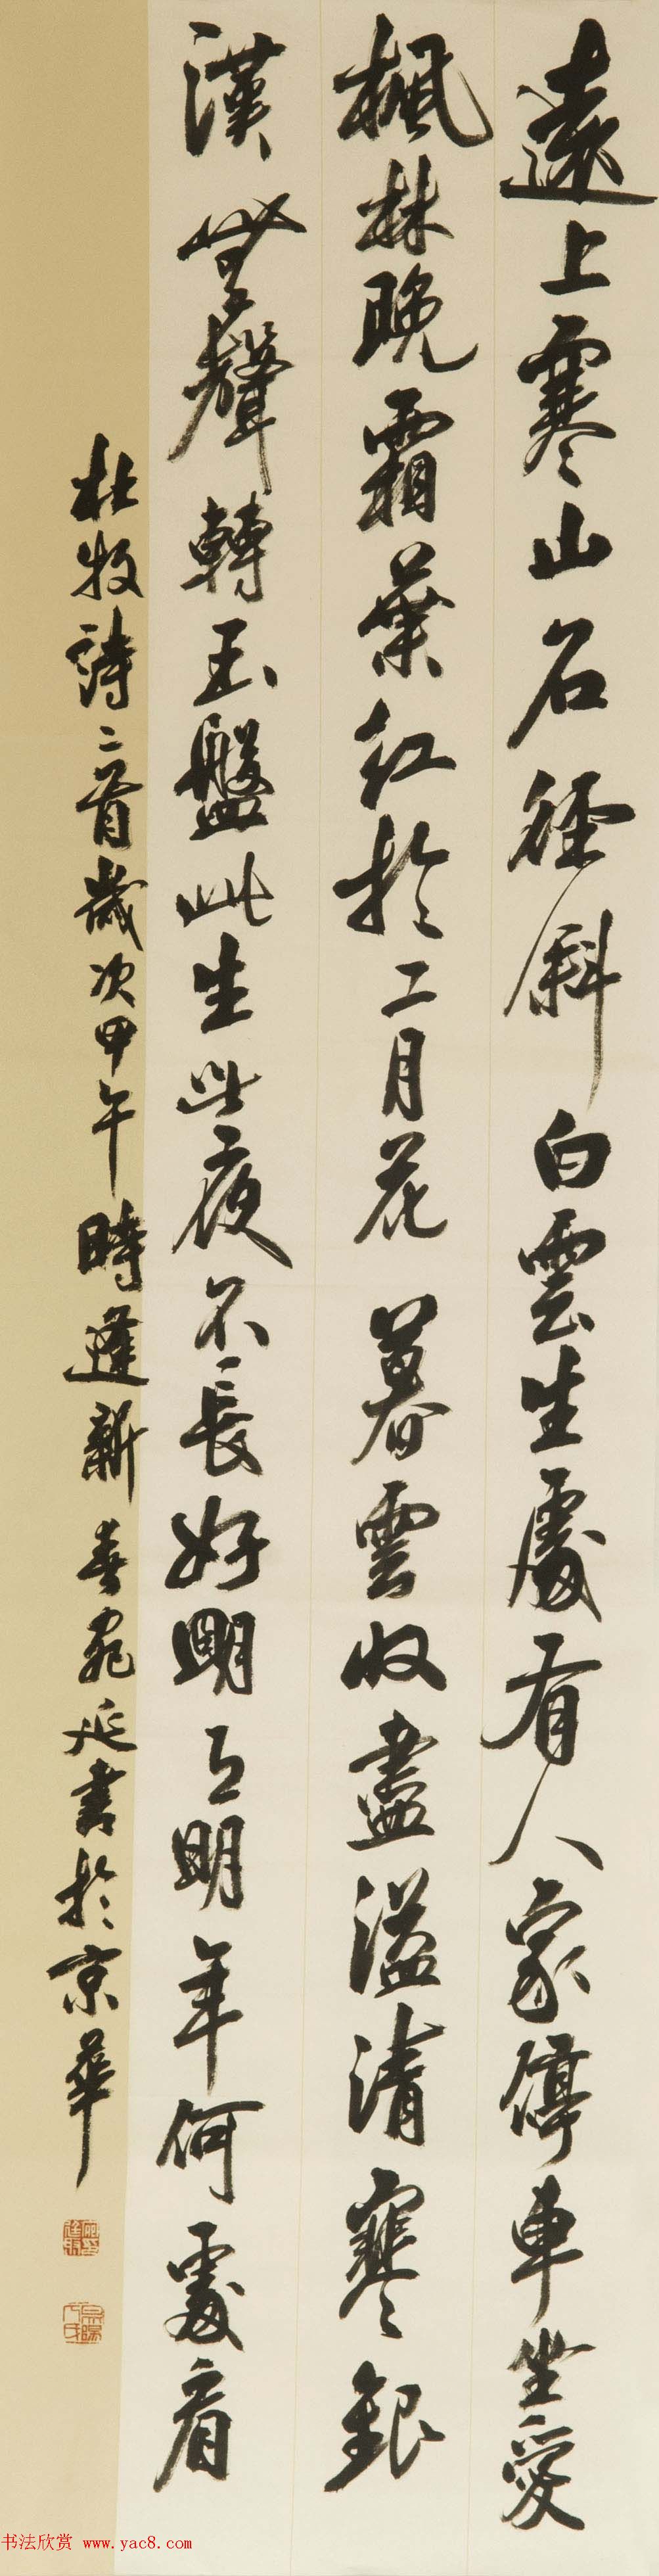 遠上寒山石徑斜白雲生處有人家停車坐愛
楓林晚霜葉紅於二月花暮雲收盡溢清寒銀
漢無聲轉玉盤此生此夜不長好明月明年何處看
杜牧詩二首歲次甲午時逢新春 延書於京華
书法欣赏 www.yac8.com